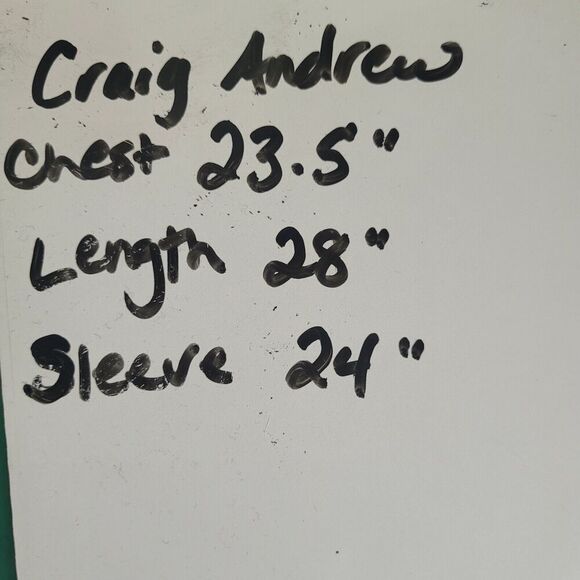 Craig Andrew
Chest 23.5"
Length 28"
Sleeve 24"